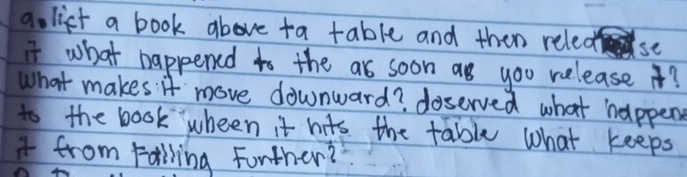 a. lift a book above ta table and then release
it what happened to the as soon as you release it?
What makes it move downward? doserved what happens
to the book wheen it hits the table What keeps
it from Falling Further?